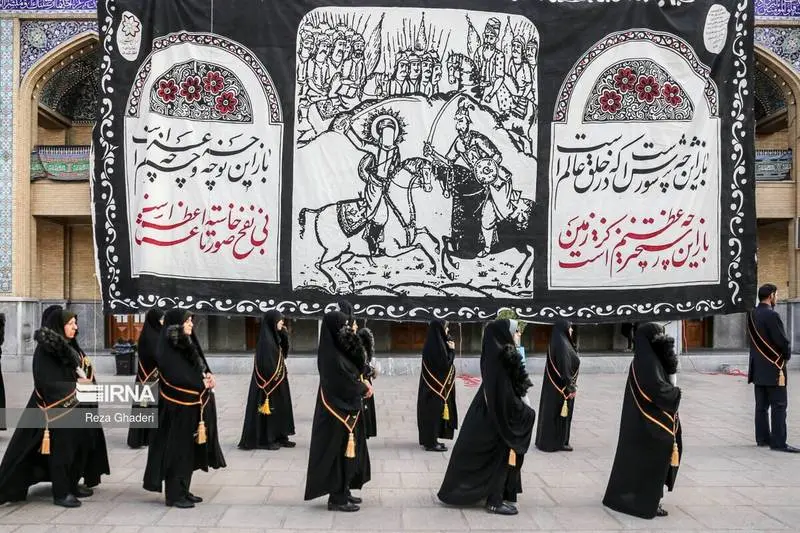 باز این چه شورش است که در خلق عالم است
باز این چه نوحه و چه عزا و چه ماتم است
باز این چه رستخیز عظیم است کز زمین
بی نفخ صور خاسته تا عرش اعظم است
IRNA
Reza Ghaderi